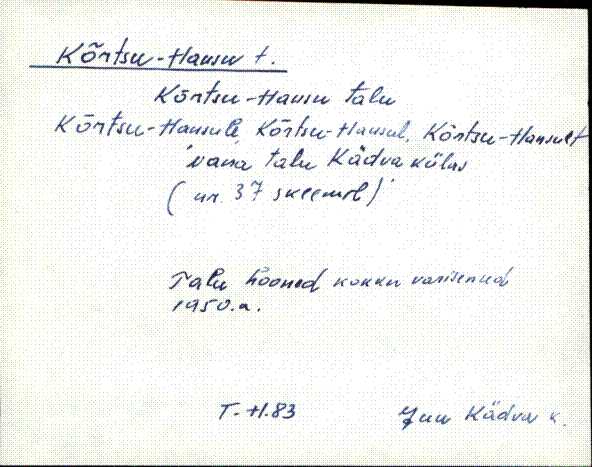 Kõrtsu-Hansu t.
Kõrtsu-Hansu talu
Kõrtsu-Hansule, Kõrtsu-Hansul, Kõrtsu-Hansult
vana talu Kädva külas
(nr. 37 skeemil)
Talu hooned kokku varisenud
1950.a.
T-H.83
Juu Kädva k.